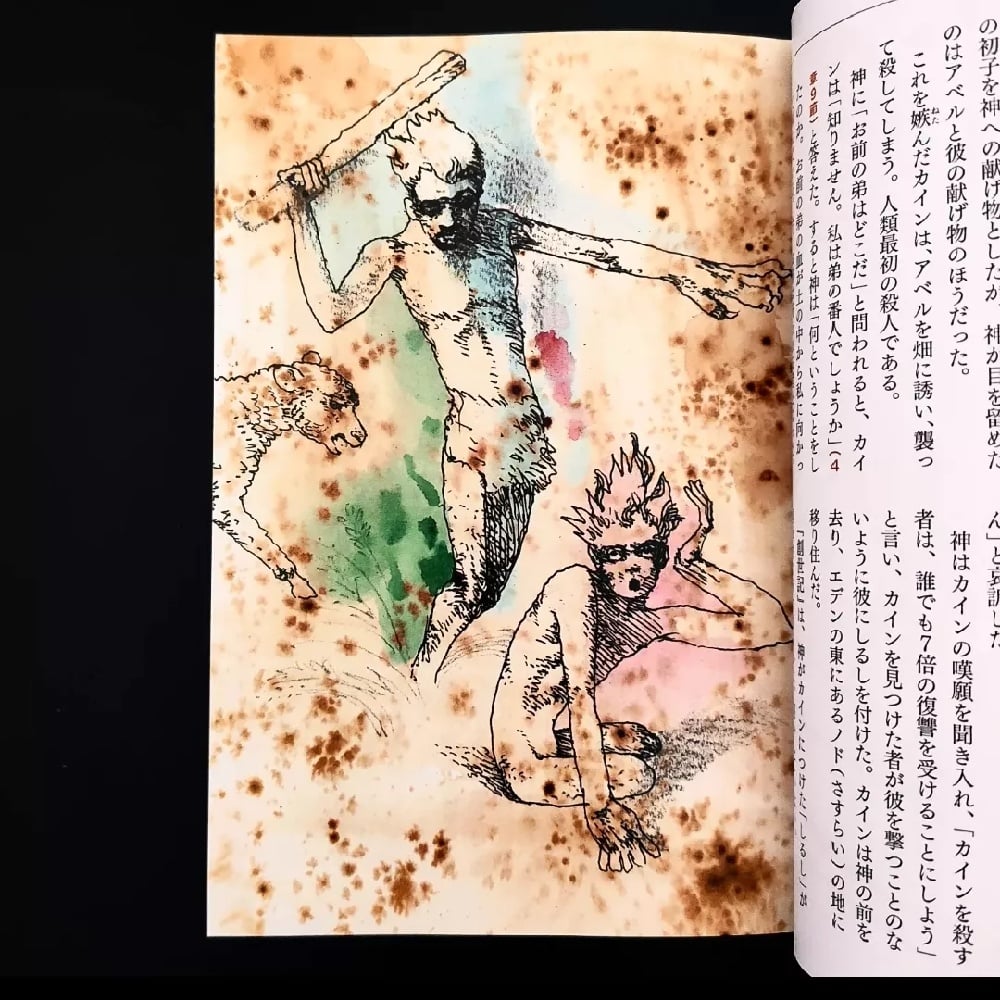 の初子を神への献げ物としたが、神が目を留めた
のはアベルと彼の献げ物のほうだった。
これを嫉んだカインは、アベルを畑に誘い、襲っ
ねた
て殺してしまう。人類最初の殺人である。
神に「お前の弟はどこだ」と問われると、カイ
ンは「知りません。私は弟の番人でしょうか」(4
章9節)と答えた。すると神は「何ということをし
たのか。お前の弟の血が土の中から私に向かっ
ん」と哀訴した
神はカインの嘆願を聞き入れ、「カインを殺す
者は、誰でも7倍の復讐を受けることにしよう」
と言い、カインを見つけた者が彼を撃つことのな
いように彼にしるしを付けた。カインは神の前を
去り、エデンの東にあるノド(さすらい)の地に
移り住んだ。
『創世記』は、神がカインにつけた「しるし」が